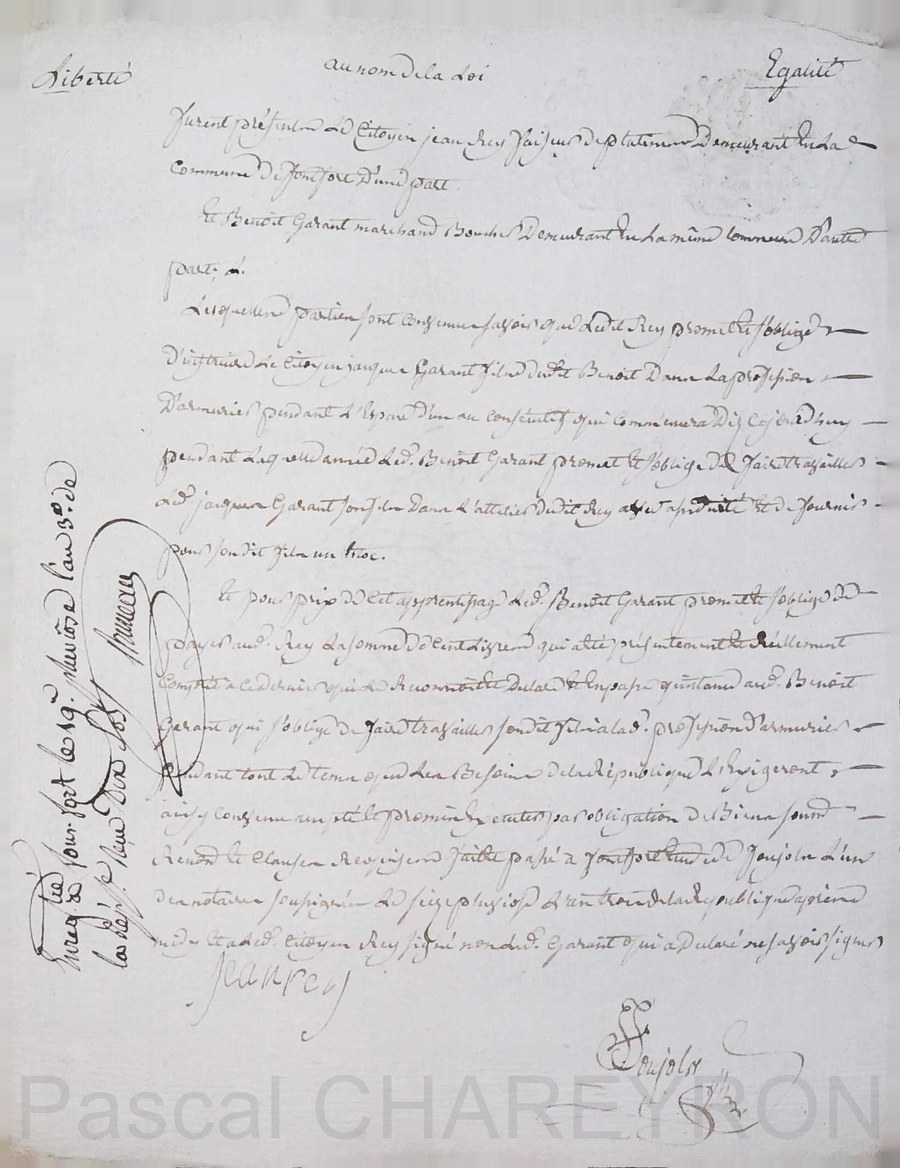 Liberté au nom de la Loi Egalité
Furent présents le Citoyen jean Rey faiseur de platines Demeurant En La
Commune de Fonfort D'une part.
Et Benoit Garant marchand Boucher Demeurant En La même commune D'autre
part; L.
Lesquelles parties sont Convenues savoir que Ledit Rey promet et s'oblige
D'instruire Le Citoyen jacques Garant fils dudit Benoit Dans La profession
D'armurier pendant L'Espace d'un an consécutif qui commencera Dez Cejourd'huy
pendant Laquelle année Led. Benoit Garant promet et s'oblige de faire travailler
Led. jacques Garant son fils Dans L'attelier dudit Rey avec assiduité et de fournir
pour son dit fils un troc.
Et pour prix de Cet apprentissage Led. Benoit Garant promet et s'oblige de
payer aud. Rey La somme de Cent Livres qui a été présentement et Réellement
Comptée a Ce dernier qui Le Reconnoit et Declare et En passe quittance aud. Benoit
Garant qui s'oblige de faire travailler sondit fils a lad. profession d'armurier
pendant tout Le tems que Les Besoins de la République L'Exigeront
ainsy Convenu accepté et promis Executer par obligation de Biens soumis
Renonc. et Clauses Requises fait et passé a Fonfort Etude de Joujoln L'un
des notaires soussignés Le seize pluviose L'an trois de la Republique après
midy Et a Led. Citoyen Rey signé non Led. Garant qui a Declaré ne savoir signer
jean rey
Enregistré a fonfort le 19 pluviôse l'an 3e de
la Rép. f. reçu dix sols
Pascal CHAREYRON